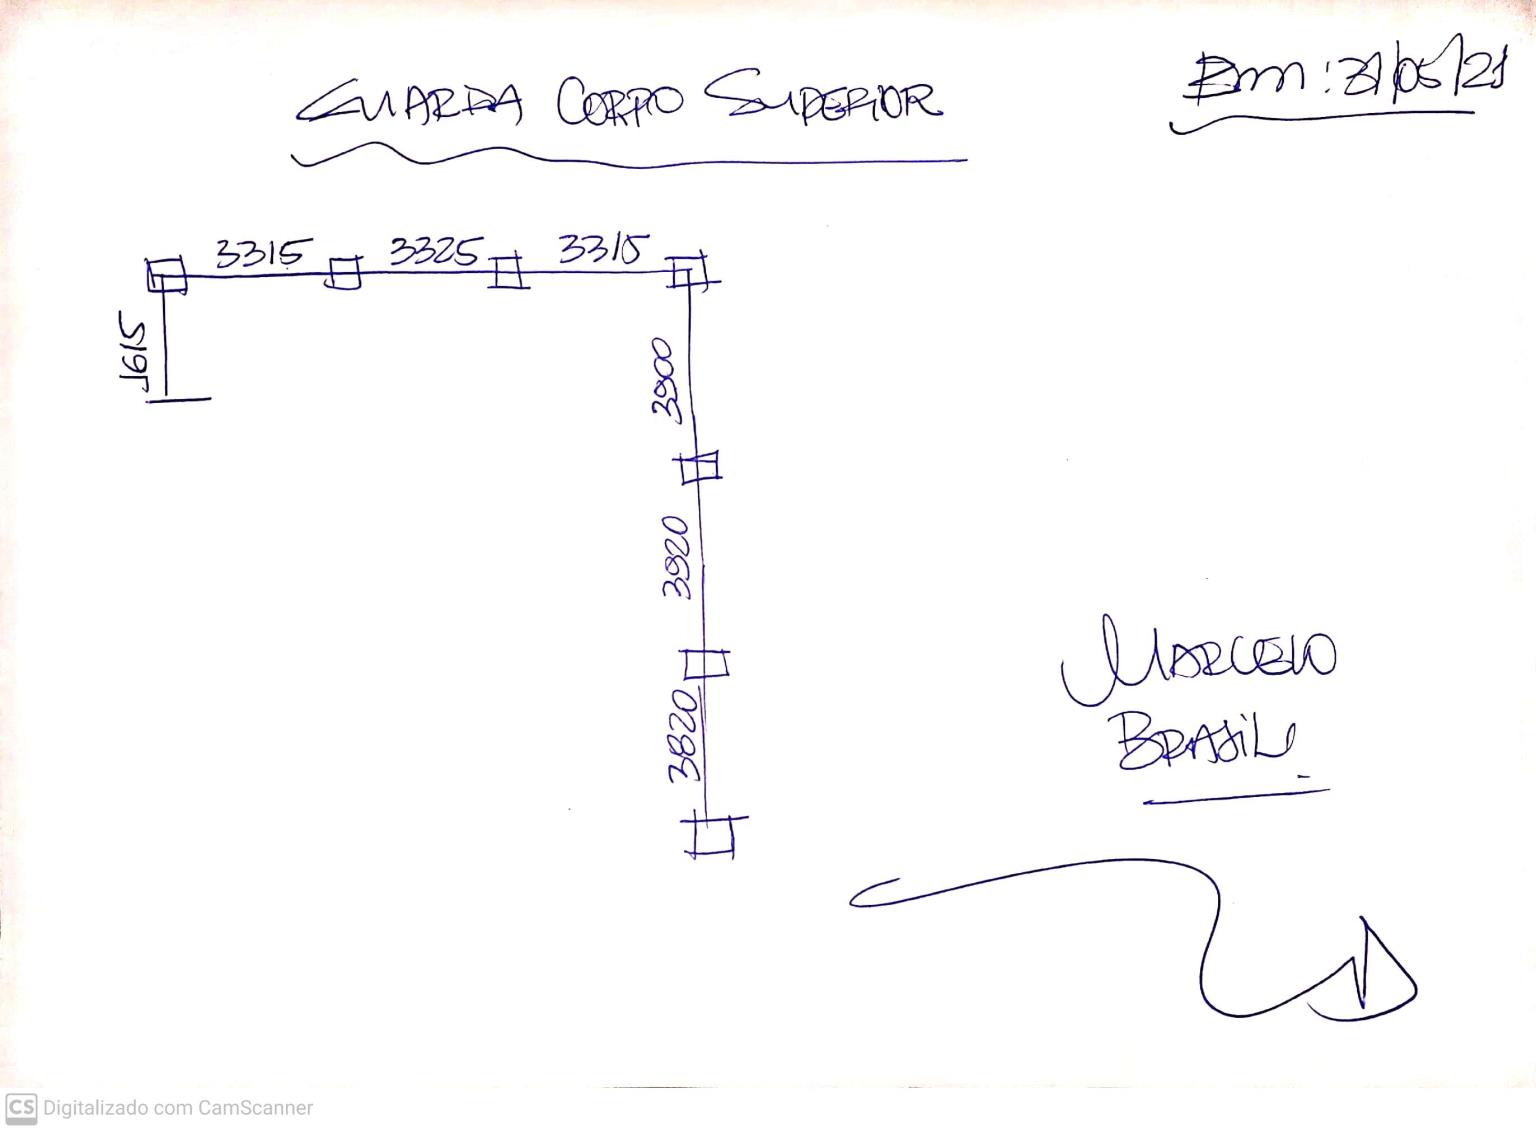 GUARDA CORPO SUPERIOR
Em: 31/05/21
3315 3325 3315
1615
3900
3920
3820
MARCELO
BRASIL
CS Digitalizado com CamScanner